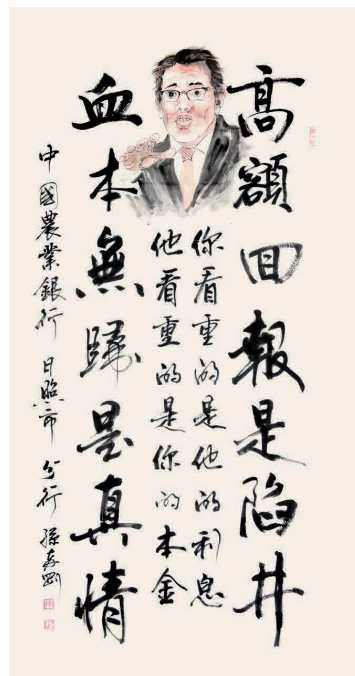 高額回報是陷井
血本無歸是真情
你看重的是他的利息
他看重的是你的本金
中國農業銀行日照市分行 孫存剛